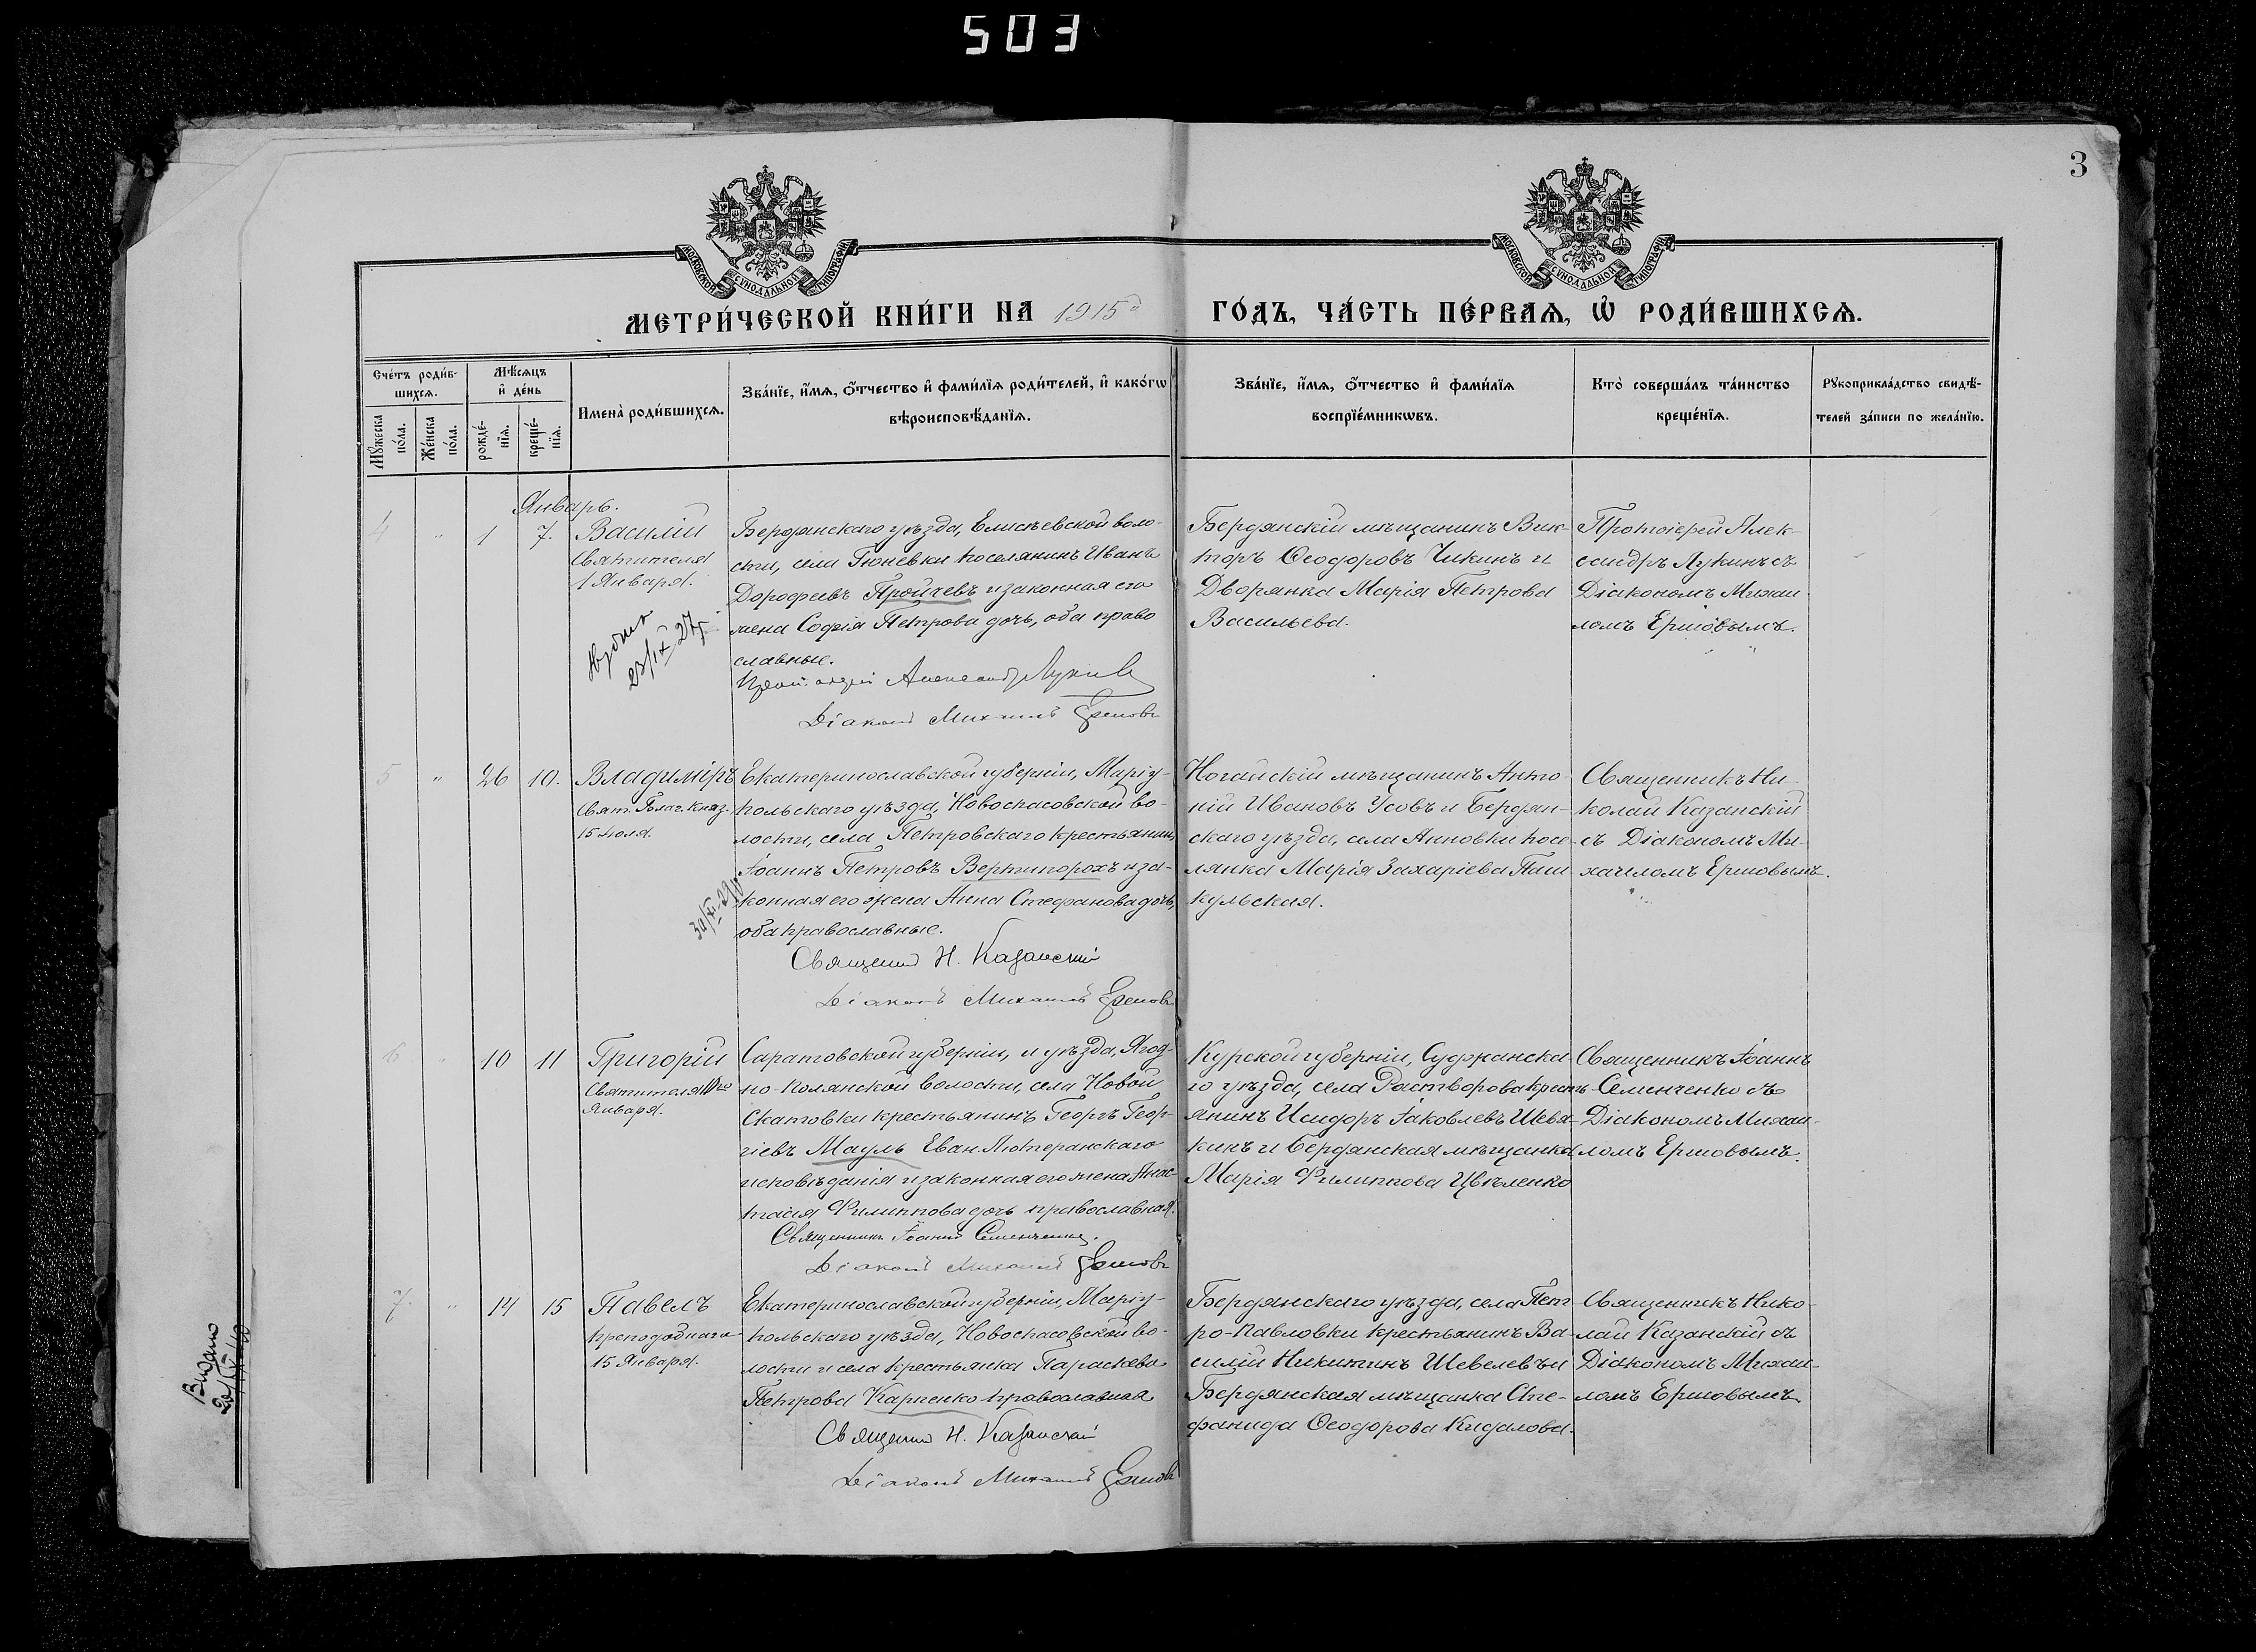 503
3
МОСКОВСКОЙ СѴНОДАЛЬНОЙ ТИПОГРАФІИ
МОСКОВСКОЙ СѴНОДАЛЬНОЙ ТИПОГРАФІИ
МЕТРИ́ЧЕСКОЙ КНИ́ГИ НА 1915й ГО́ДЪ, ЧА́СТЬ ПЕ́РВАѦ, Ѿ РОДИ́ВШИХСѦ.
Сче́тъ роди́в-
шихсѧ.
Мꙋ́жеска по́ла.
Же́нска по́ла.
Мѣ́сѧцъ
и҆ де́нь
рожде́-
нїѧ.
креще́-
нїѧ.
И҆мена̀ роди́вшихсѧ.
Зва́нїе, и҆́мѧ, ѻ҆́тчество и҆ фами́лїѧ роди́телей, и҆ како́гѡ
вѣроисповѣ́данїѧ.
Зва́нїе, и҆́мѧ, ѻ҆́тчество и҆ фами́лїѧ
воспрїе́мникѡвъ.
Кто̀ соверша́лъ та́инство
креще́нїѧ.
Рꙋкоприкла́дство свидѣ́-
телей за́писи по жела́нїю.
Январь.
4 " 1 7. Василій
Святителя
1 Января.
23/IX 27г
Бердянскаго уѣзда, Елисѣевской воло-
сти, села Гюневки поселянинъ Иванъ
Дорофеевъ Пройчевъ и законная его
жена Софія Петрова дочь, оба право
славные.
Протоіерей Александръ Лукинъ
Діаконъ Михаилъ Ершовъ
Бердянскій мѣщанинъ Вик-
торъ Ѳеодоровъ Чикинъ и
Дворянка Марія Петрова
Васильева.
Протоіерей Алек-
сандръ Лукинъ съ
Діакономъ Михаи-
ломъ Ершовымъ.
5 " 26 10. Владиміръ
Свят. Благ. Княз.
15 Іюля.
30/XI-29г
Екатеринославской губерніи, Маріу-
польскаго уѣзда, Новоспасовской во-
лости, села Петровскаго крестьянинъ
Іоаннъ Петровъ Вертипорохъ и за-
конная его жена Анна Стефанова дочь,
оба православные.
Священникъ Н. Казанскій
Діаконъ Михаилъ Ершовъ
Ногайскій мѣщанинъ Анто-
ній Ивановъ Усовъ и Бердян-
скаго уѣзда, села Анновки посе-
лянка Марія Захаріева Паш-
кульская.
Священникъ Ни-
колай Казанскій
съ Діакономъ Ми-
хаиломъ Ершовымъ.
6 " 10 11 Григорій
Святителя 10го
Января.
Саратовской губерніи, и уѣзда, Ягод-
но-Полянской волости, села Новой
Скатовки крестьянинъ Георгъ Геор-
гіевъ Мауль Еван. Лютеранскаго
исповѣданія и законная его жена Анас-
тасія Филиппова дочь православная.
Священникъ Іоаннъ Семенченко.
Діаконъ Михаилъ Ершовъ
Курской губерніи, Суджанска-
го уѣзда, села Растворова кресть-
янинъ Исидоръ Іаковлевъ Шевя-
кинъ и Бердянская мѣщанка
Марія Филиппова Цвѣленко
Священникъ Іоаннъ
Семенченко съ
Діакономъ Михаи-
ломъ Ершовымъ.
7. " 14 15 Павелъ
преподобнаго
15 Января.
Екатеринославской губерніи, Маріу-
польскаго уѣзда, Новоспасовской во-
лости и села крестьянка Параскева
Петрова Карпенко православная
Священникъ Н. Казанскій
Діаконъ Михаилъ Ершовъ
Бердянскаго уѣзда, села Пет-
ро-Павловки крестьянинъ Ва-
силій Никитинъ Шевелевъ и
Бердянская мѣщанка Сте-
фанида Ѳеодорова Кидалова.
Священникъ Нико-
лай Казанскій съ
Діакономъ Михаи-
ломъ Ершовымъ
Видано